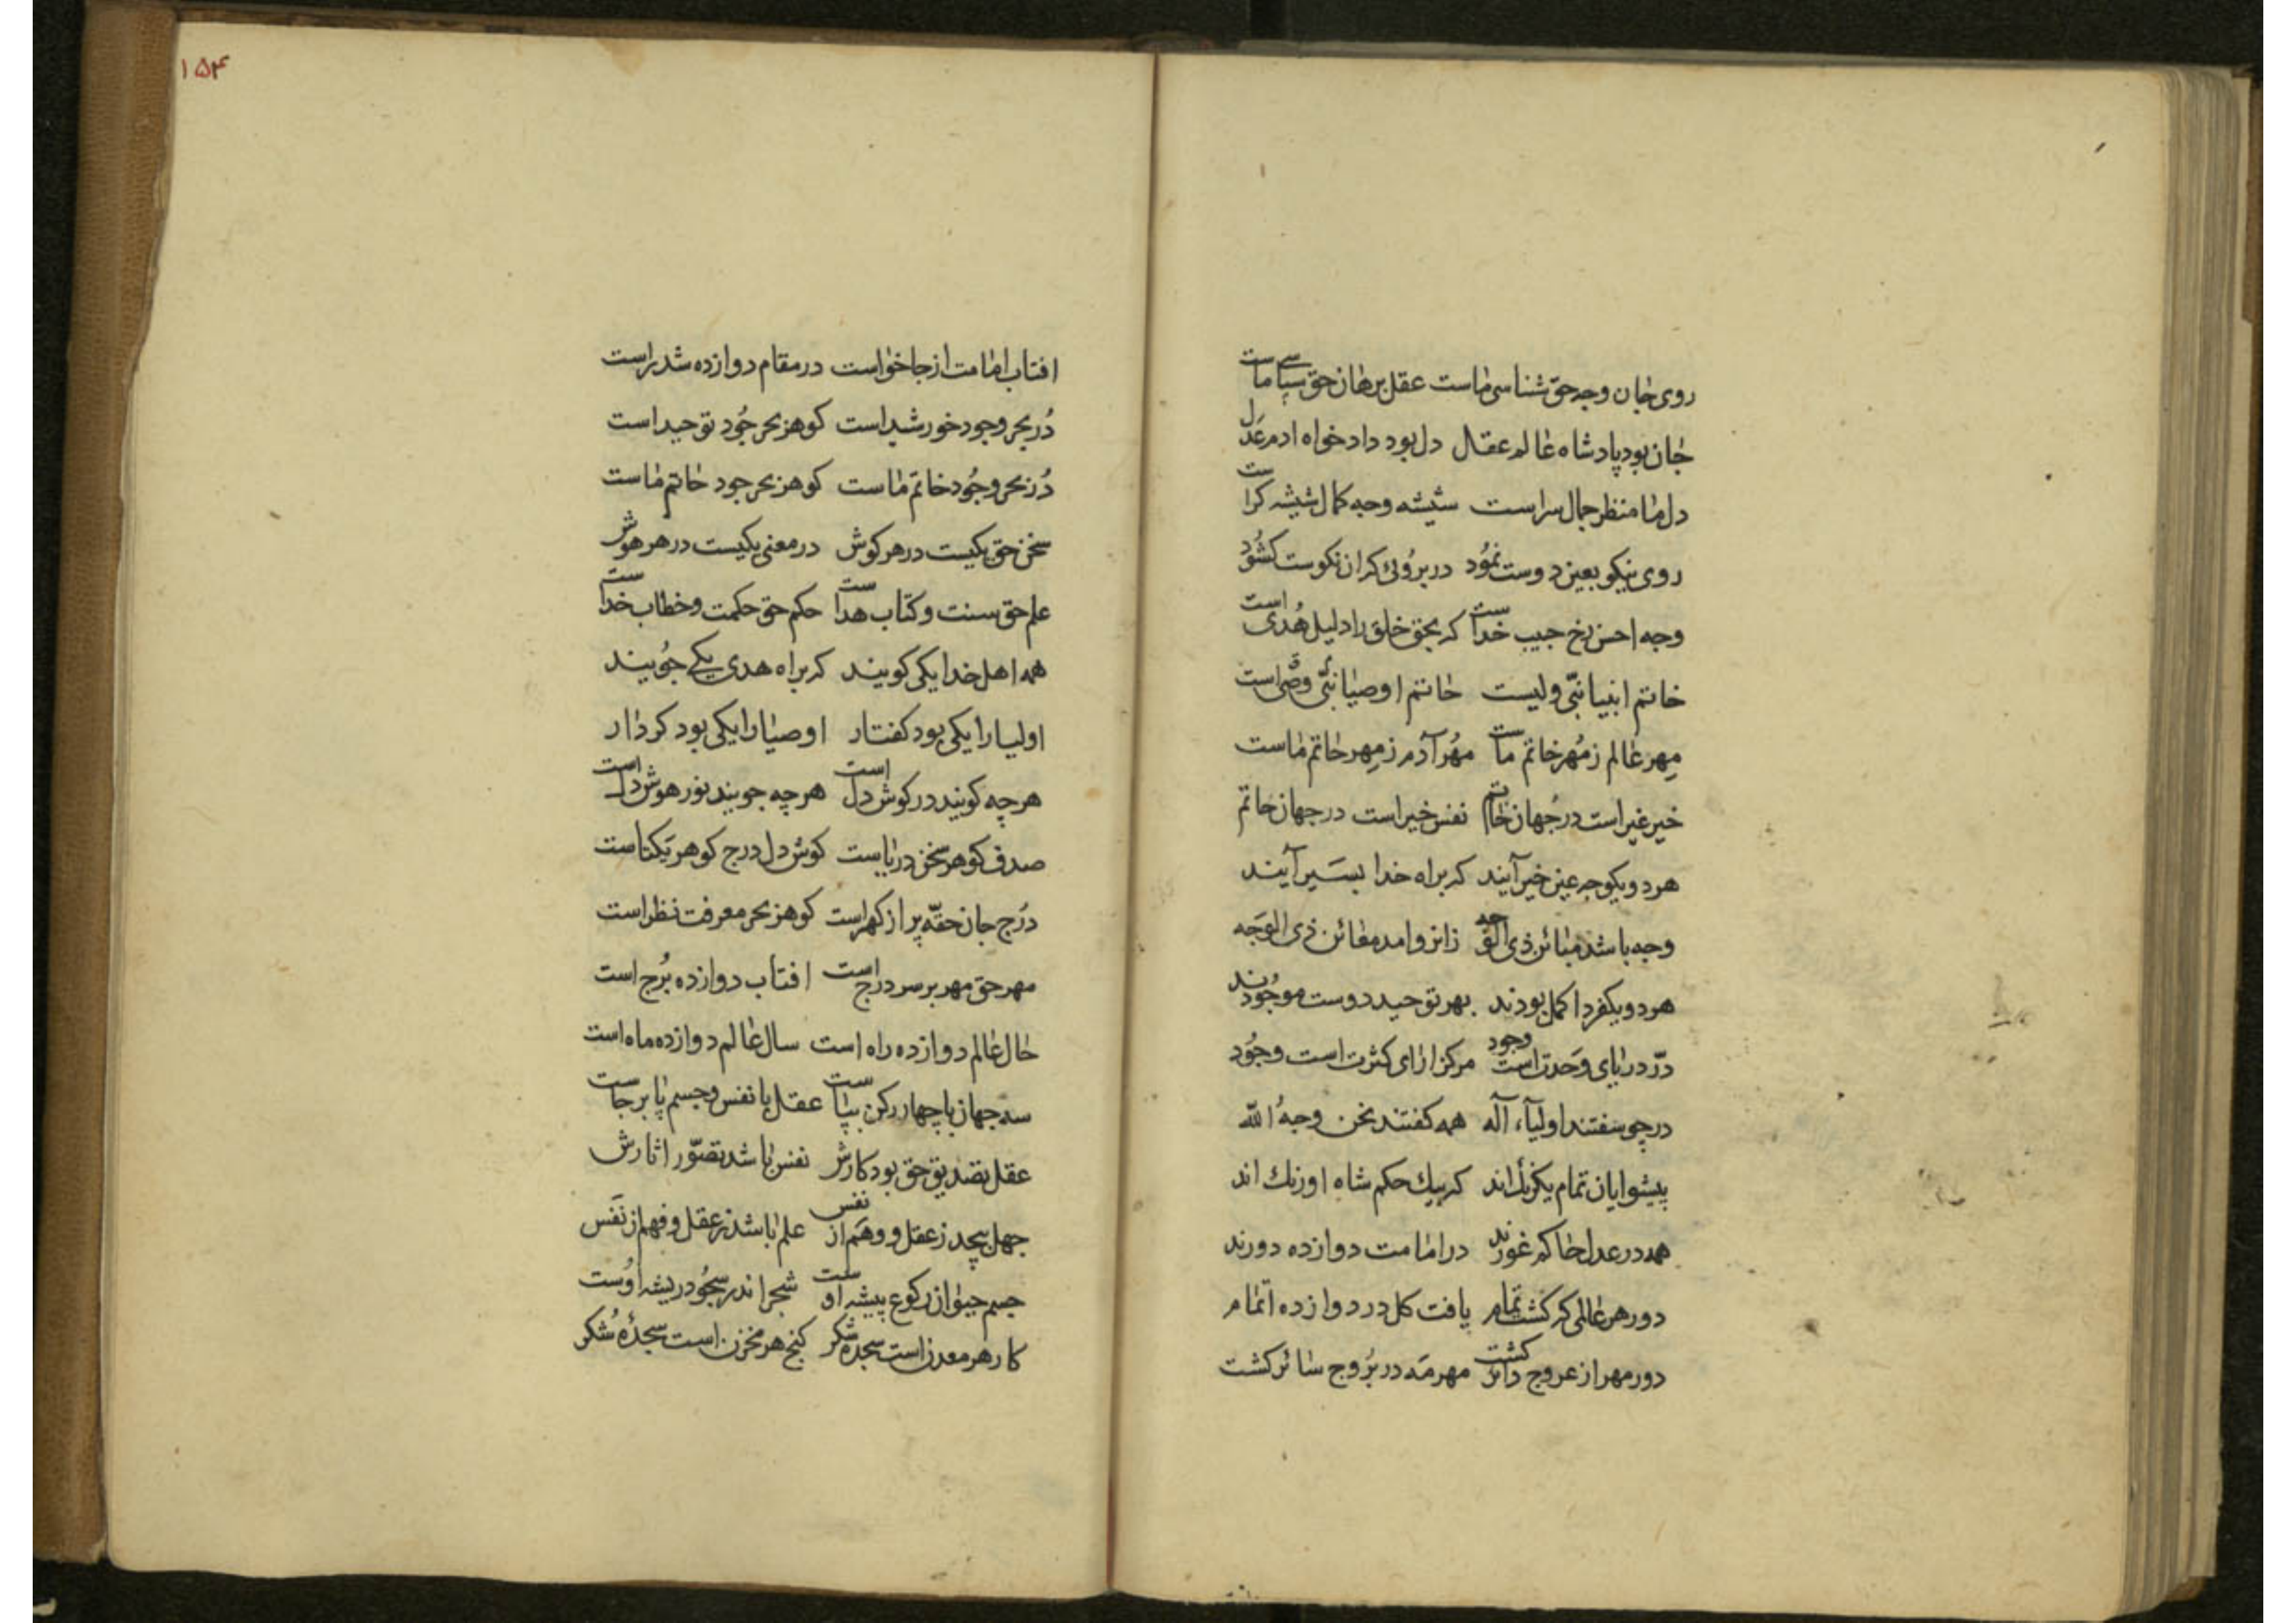 روی جان وجه حق شناسی ماست عقل برهان حق سپاسی ماست
جان بود پادشاه عالم عقل دل بود داد خواه ادم عدل
دل ما منظر جمال سراست شیشه وجه کمال شیشه کراست
روی نیکو بعین دوست نمود در بروئی کران نکوست کشود
وجه احسن رخ حبیب خداست که بحق خلق را دلیل هُدی است
خاتم انبیا نبّی ولیست خاتم اوصیا نبّی وصّی است
مِهر عالم ز مُهر خاتم ماست مُهر آدم ز مِهر خاتم ماست
خیر غیر است در جهان خاتم نفس خیر است در جهان خاتم
هر دو یکوجه عین خیر آیند که براه خدا بسَیر آیند
وجه باشد مبائن ذی الوجه زانرو امد مغائن ذی الوَجه
هر دو یکفرد اکمل بودند بهر توحید دوست موجُودند
درّ دریای وَحدتست وجود مرکز ارای کثرت است وجُود
در چو سفتند اولیآء آله همه کفتند نحن وجهُ الله
پیشوایان تمام یکرنك اند که بیك حکم شاه اورنك اند
همه در عدل حاکم غورند در امامت دوازده دورند
دور هر عالمی که کشت تمام یافت کل در دوازده اتمام
دور مهر از عروج دائر کشت مهر مَه در بُروج سائر کشت
۱۵۴
افتاب امامت از جا خواست در مقام دوازده شد راست
دُر بحر وجود خورشید است کوهر بحر جُود توحید است
دُر بحر وجُود خاتم ماست کوهر بحر جود خاتم ماست
سخن حق یکیست در هر کوش در معنی یکیست در هر هوش
علم حق سنت و کتاب هداست حکم حق حکمت و خطاب خداست
همه اهل خدا یکی کویند که براه هدی یکی جُویند
اولیا را یکی بود کفتار اوصیا را یکی بود کردار
هر چه کویند در کوش دل است هر چه جویند نور هوش دل است
صدف کوهر سخن دریاست کوش دل درج کوهر یکتاست
دُرج جان حقّه پر از کهر است کوهر بحر معرفت نظر است
مهر حق مهر بر سر درج است افتاب دوازده بُرج است
حال عالم دوازده راه است سال عالم دوازده ماه است
سه جهان با چهار رکن بپاست عقل با نفس و جسم پا بر جاست
عقل تصدیق حق بود کارش نفس باشد تصوّر اثارش
جهل پیچد ز عقل و وهَم از نفس علم باشد ز عقل و فهم از نَفس
جسم حیوان رکوع پیشه اوست شجر اندر سجُود ریشه اوُست
کار هر معدن است سجده شکر کنج هر مخزن است سجدهٔ شکر